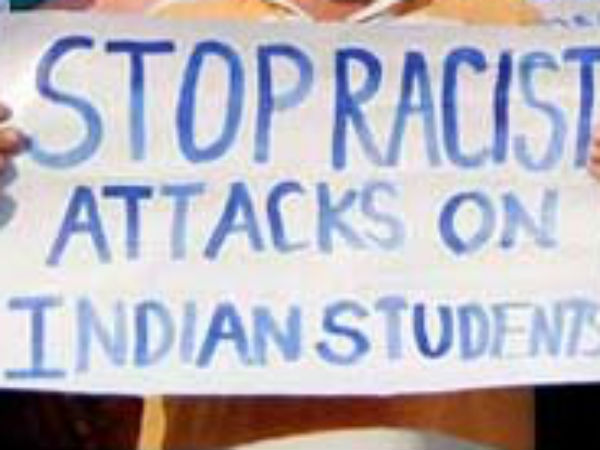 STOP RACIST
ATTACKS ON
INDIAN STUDENTS